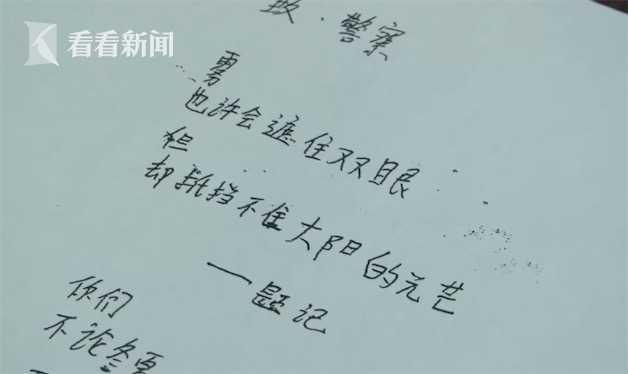 看看新闻
致·警察
雾
也许会遮住双眼
但
却抵挡不住大阳的光芒
—题记
你们
不论冬夏